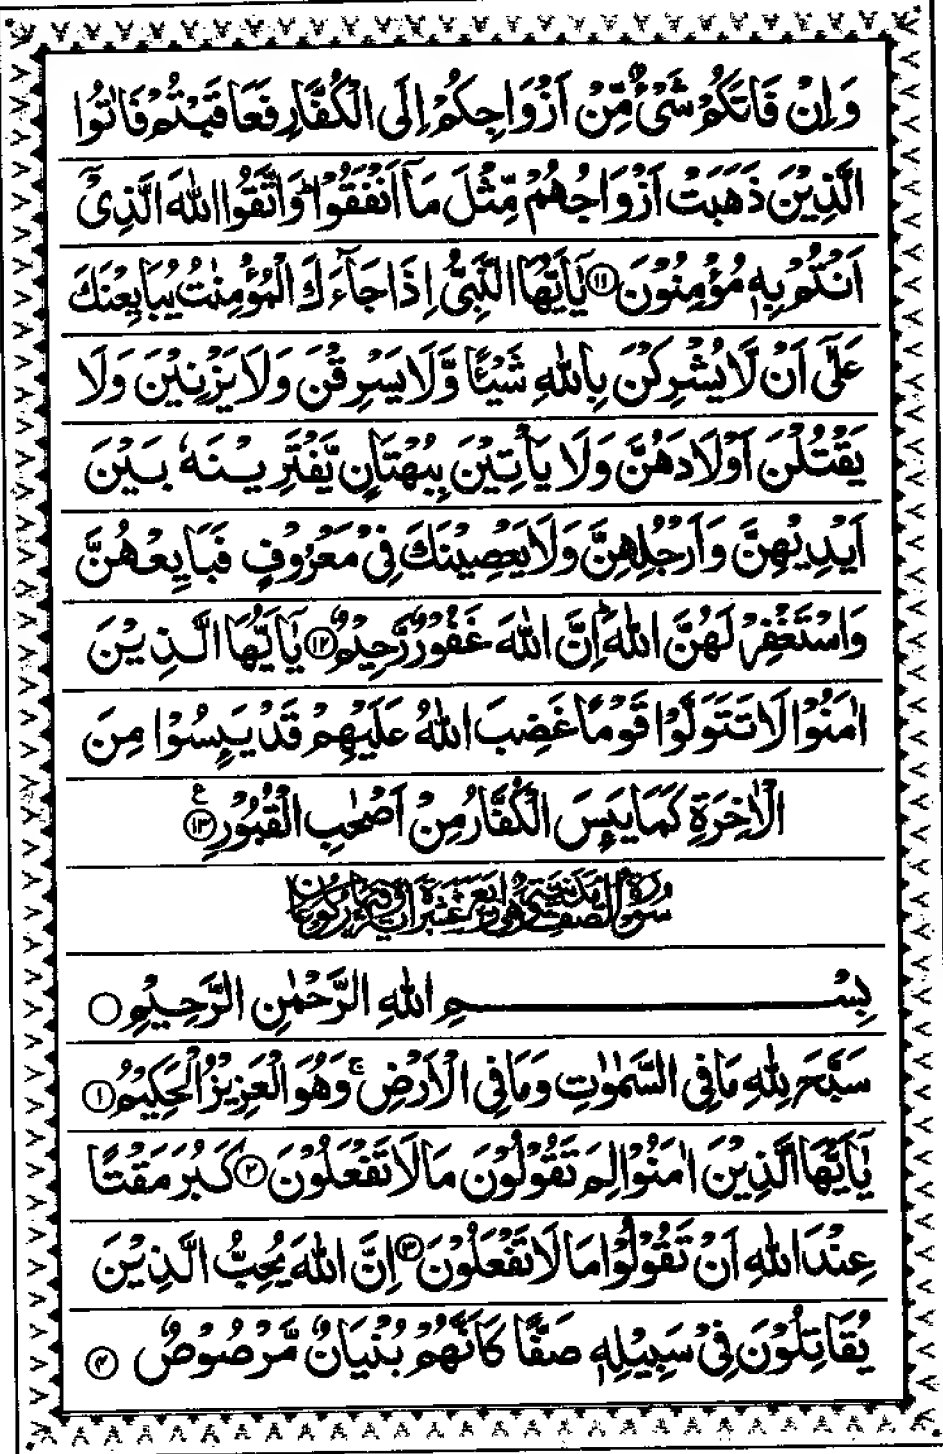 وَاِنْ فَاتَكُمْ شَىْءٌ مِّنْ اَزْوَاجِكُمْ اِلَى الْكُفَّارِ فَعَاقَبْتُمْ فَاٰتُوا
الَّذِيْنَ ذَهَبَتْ اَزْوَاجُهُمْ مِّثْلَ مَاۤ اَنْفَقُوْاؕ وَاتَّقُوا اللّٰهَ الَّذِىْۤ
اَنْتُمْ بِهٖ مُؤْمِنُوْنَ ۝۱۱ يٰۤاَيُّهَا النَّبِىُّ اِذَا جَآءَكَ الْمُؤْمِنٰتُ يُبَايِعْنَكَ
عَلٰٓى اَنْ لَّا يُشْرِكْنَ بِاللّٰهِ شَيْئًا وَّلَا يَسْرِقْنَ وَلَا يَزْنِيْنَ وَلَا
يَقْتُلْنَ اَوْلَادَهُنَّ وَلَا يَاْتِيْنَ بِبُهْتَانٍ يَّفْتَرِيْنَهٗ بَيْنَ
اَيْدِيْهِنَّ وَاَرْجُلِهِنَّ وَلَا يَعْصِيْنَكَ فِىْ مَعْرُوْفٍ فَبَايِعْهُنَّ
وَاسْتَغْفِرْ لَهُنَّ اللّٰهَؕ اِنَّ اللّٰهَ غَفُوْرٌ رَّحِيْمٌ ۝۱۲ يٰۤاَيُّهَا الَّذِيْنَ
اٰمَنُوْا لَا تَتَوَلَّوْا قَوْمًا غَضِبَ اللّٰهُ عَلَيْهِمْ قَدْ يَىِٕسُوْا مِنَ
الْاٰخِرَةِ كَمَا يَىِٕسَ الْكُفَّارُ مِنْ اَصْحٰبِ الْقُبُوْرِ ۝۱۳ ع
سُوْرَةُ الصَّفِّ مَدَنِيَّةٌ وَّهِىَ اَرْبَعَ عَشْرَةَ اٰيَةً وَّفِيْهَا رُكُوْعَانِ
بِسْمِ اللّٰهِ الرَّحْمٰنِ الرَّحِيْمِ ۝
سَبَّحَ لِلّٰهِ مَا فِى السَّمٰوٰتِ وَمَا فِى الْاَرْضِۚ وَهُوَ الْعَزِيْزُ الْحَكِيْمُ ۝۱
يٰۤاَيُّهَا الَّذِيْنَ اٰمَنُوْا لِمَ تَقُوْلُوْنَ مَا لَا تَفْعَلُوْنَ ۝۲ كَبُرَ مَقْتًا
عِنْدَ اللّٰهِ اَنْ تَقُوْلُوْا مَا لَا تَفْعَلُوْنَ ۝۳ اِنَّ اللّٰهَ يُحِبُّ الَّذِيْنَ
يُقَاتِلُوْنَ فِىْ سَبِيْلِهٖ صَفًّا كَاَنَّهُمْ بُنْيَانٌ مَّرْصُوْصٌ ۝۴